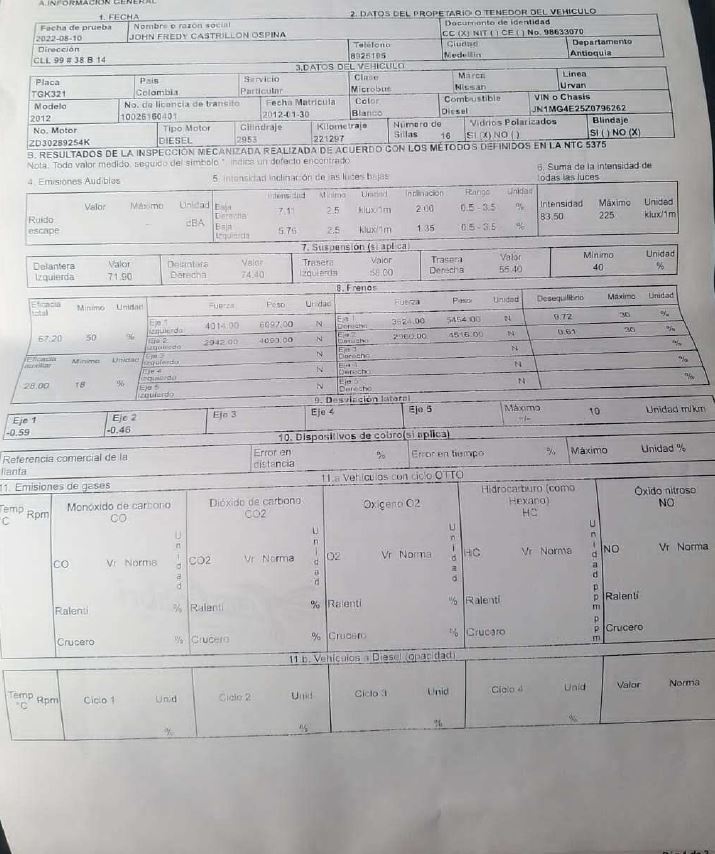 A.INFORMACIÓN GENERAL
1. FECHA
2. DATOS DEL PROPETARIO O TENEDOR DEL VEHICULO
Fecha de prueba
2022-08-10
Nombre o razón social
JOHN FREDY CASTRILLON OSPINA
Documento de identidad
CC (X) NIT ( ) CE ( ) No. 98633070
Dirección
CLL 99 # 38 B 14
Teléfono
Ciudad
Medellin
Departamento
Antioquia
3.DATOS DEL VEHICULO
Placa
TGK321
Pais
Colombia
Servicio
Particular
Clase
Microbus
Marca
Nissan
Linea
Urvan
Modelo
2012
No. de licencia de transito
10026160401
Fecha Matricula
2012-01-30
Color
Blanco
Combustible
Diesel
VIN o Chasis
JN1MG4E25Z0796262
No. Motor
ZD30289254K
Tipo Motor
DIESEL
Cilindraje
2953
Kilometraje
221297
Número de Sillas 16
Vidrios Polarizados
SI (X) NO ( )
Blindaje
SI ( ) NO (X)
B. RESULTADOS DE LA INSPECCIÓN MECANIZADA REALIZADA DE ACUERDO CON LOS MÉTODOS DEFINIDOS EN LA NTC 5375
Nota. Todo valor medido, seguido del simbolo *, indica un defecto encontrado
4. Emisiones Audibles
5. Intensidad Inclinación de las luces bajas
6. Suma de la intensidad de todas las luces
Valor Máximo Unidad
Ruido escape dBA
Intensidad Minimo Unidad Inclinación Rango Unidad
Baja Derecha 7.11 2.5 klux/1m 2.00 0.5 - 3.5 %
Baja Izquierda 5.76 2.5 klux/1m 1.35 0.5 - 3.5 %
Intensidad Máximo Unidad
83.50 225 klux/1m
7. Suspensión (si aplica)
Delantera Izquierda Valor 71.90
Delantera Derecha Valor 74.40
Trasera Izquierda Valor
Trasera Derecha Valor 55.40
Minimo 40
Unidad %
8. Frenos
Eficacia total Minimo Unidad
67.20 50 %
Fuerza Peso Unidad Fuerza Peso Unidad Desequilibrio Máximo Unidad
Eje 1 Izquierdo 4014.00 6097.00 N Eje 1 Derecho 5454.00 N 9.72 30 %
Eje 2 Izquierdo 2942.00 4093.00 N Eje 2 Derecho 4516.00 N 0.61 30 %
Eje 3 Izquierdo N Eje 3 Derecho N %
Eje 4 Izquierdo N Eje 4 Derecho N %
Eje 5 Izquierdo N Eje 5 Derecho N %
Eficacia auxiliar Minimo Unidad
28.00 18 %
9. Desviación lateral
Eje 1
-0.59
Eje 2
-0.46
Eje 3
Eje 4
Eje 5
Máximo +/- 10 Unidad m/km
10. Dispositivos de cobro(si aplica)
Referencia comercial de la llanta
Error en distancia %
Error en tiempo %
Máximo
Unidad %
11. Emisiones de gases
11.a Vehículos con ciclo OTTO
Temp °C Rpm
Monóxido de carbono CO
Dióxido de carbono CO2
Oxígeno O2
Hidrocarburo (como Hexano) HC
Óxido nitroso NO
CO Vr Norma Unidad
CO2 Vr Norma Unidad
O2 Vr Norma Unidad
HC Vr Norma Unidad
NO Vr Norma
Ralenti % Ralenti % Ralenti % Ralenti ppm Ralenti
Crucero % Crucero % Crucero % Crucero ppm Crucero
11.b. Vehículos a Diesel (opacidad)
Temp °C Rpm Ciclo 1 Unid Ciclo 2 Unid Ciclo 3 Unid Ciclo 4 Unid Valor Norma
% % % %